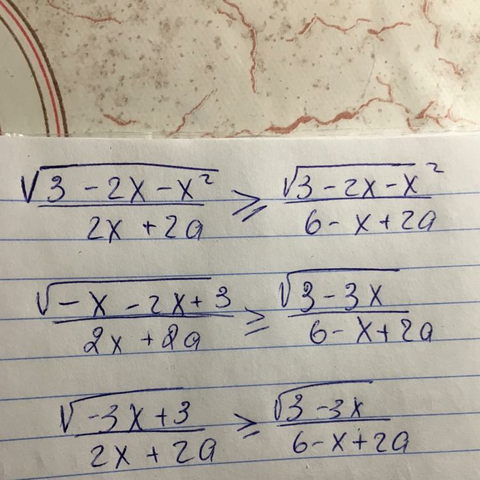 √(3 - 2x - x²) / (2x + 2a) ≥ √(3 - 2x - x²) / (6 - x + 2a)
√(-x - 2x + 3) / (2x + 2a) ≥ √(3 - 3x) / (6 - x + 2a)
√(-3x + 3) / (2x + 2a) ≥ √(3 - 3x) / (6 - x + 2a)